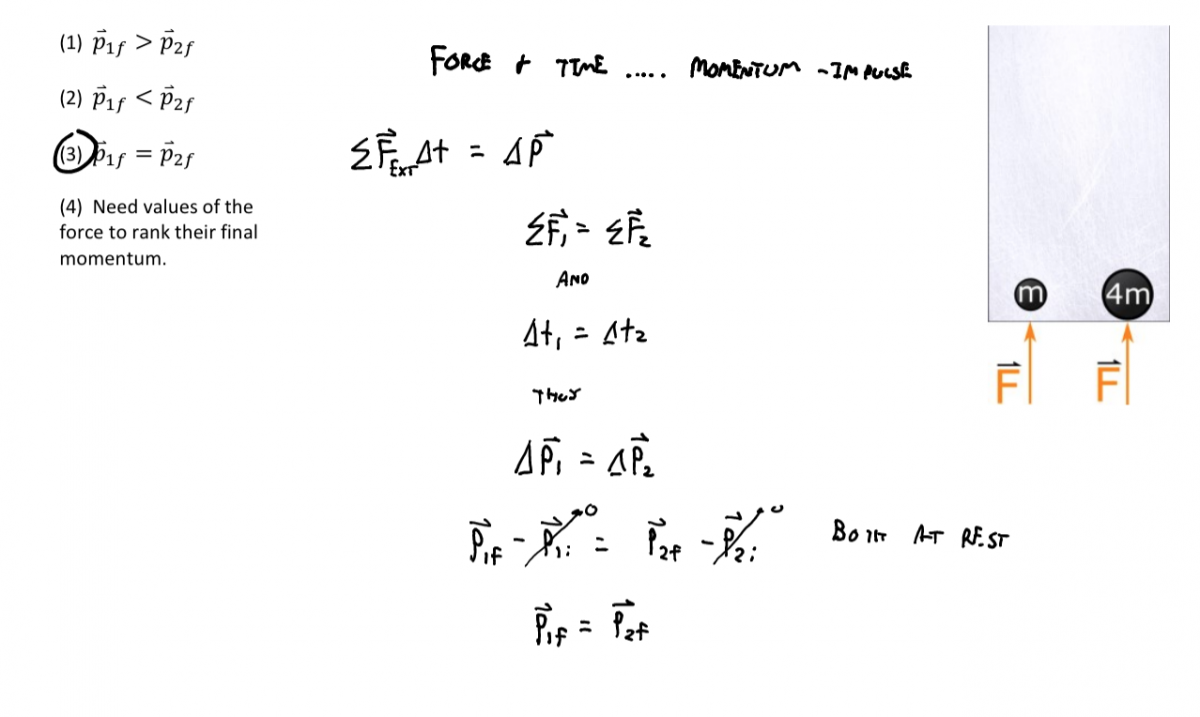 (1) p⃗1f > p⃗2f
(2) p⃗1f < p⃗2f
(3) p⃗1f = p⃗2f
(4) Need values of the
force to rank their final
momentum.
FORCE + TIME ..... MOMENTUM -IMPULSE
ΣF⃗Ext Δt = ΔP⃗
ΣF⃗1 = ΣF⃗2
AND
Δt1 = Δt2
THUS
ΔP⃗1 = ΔP⃗2
P⃗1f - P⃗1i 0 = P⃗2f - P⃗2i 0 BOTH AT REST
P⃗1f = P⃗2f
m 4m
F⃗ F⃗